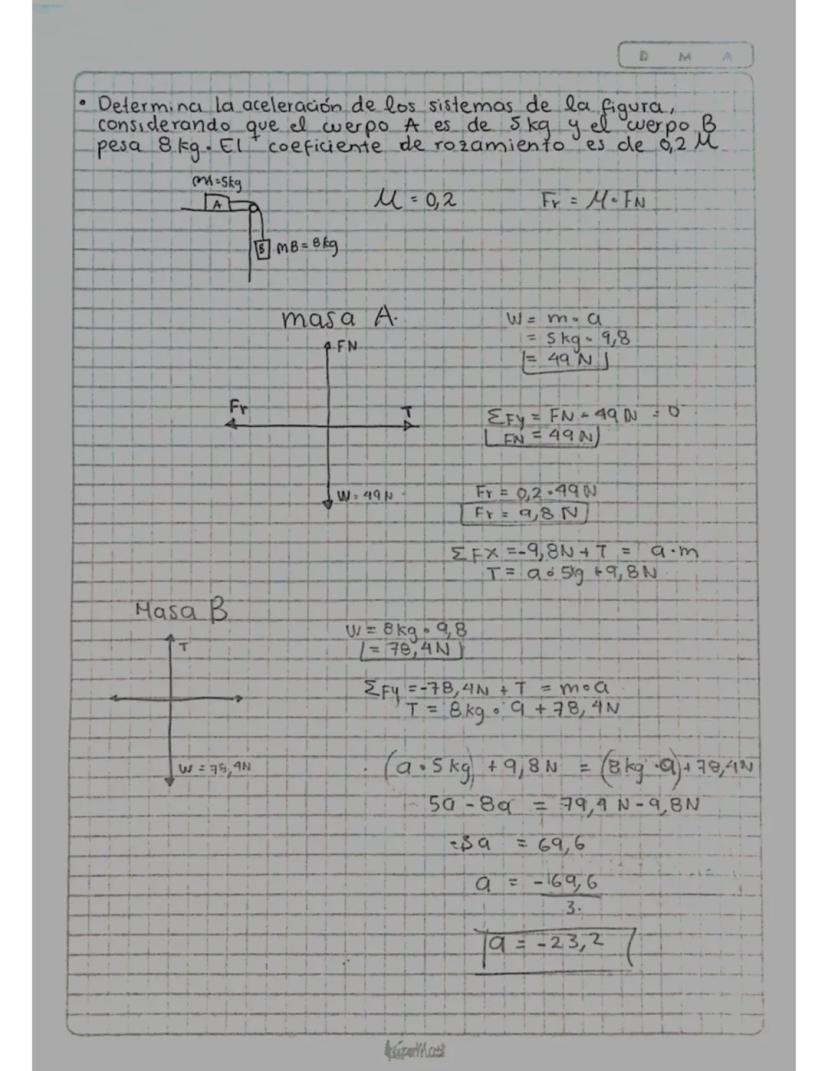 D M A
• Determina la aceleración de los sistemas de la figura,
considerando que el cuerpo A es de 5 kg y el cuerpo B
pesa 8 kg. El coeficiente de rozamiento es de 0,2 M
mA=5kg
A
M = 0,2
Fr = M • FN
B mB = 8kg
masa A.
W = m • a
= 5 kg • 9,8
= 49 N
FN
Fr
T
W = 49 N
ΣFy = FN - 49 N = 0
FN = 49 N
Fr = 0,2 • 49 N
Fr = 9,8 N
ΣFX = -9,8N + T = a • m
T = a • 5kg + 9,8N
Masa B
T
W = 8 kg • 9,8
= 78,4 N
ΣFy = -78,4N + T = m • a
T = 8 kg • a + 78,4N
W = 78,4N
(a • 5 kg) + 9,8 N = (8 kg • a) + 78,4N
5a - 8a = 79,4 N - 9,8N
-3a = 69,6
a = -69,6
3.
a = -23,2